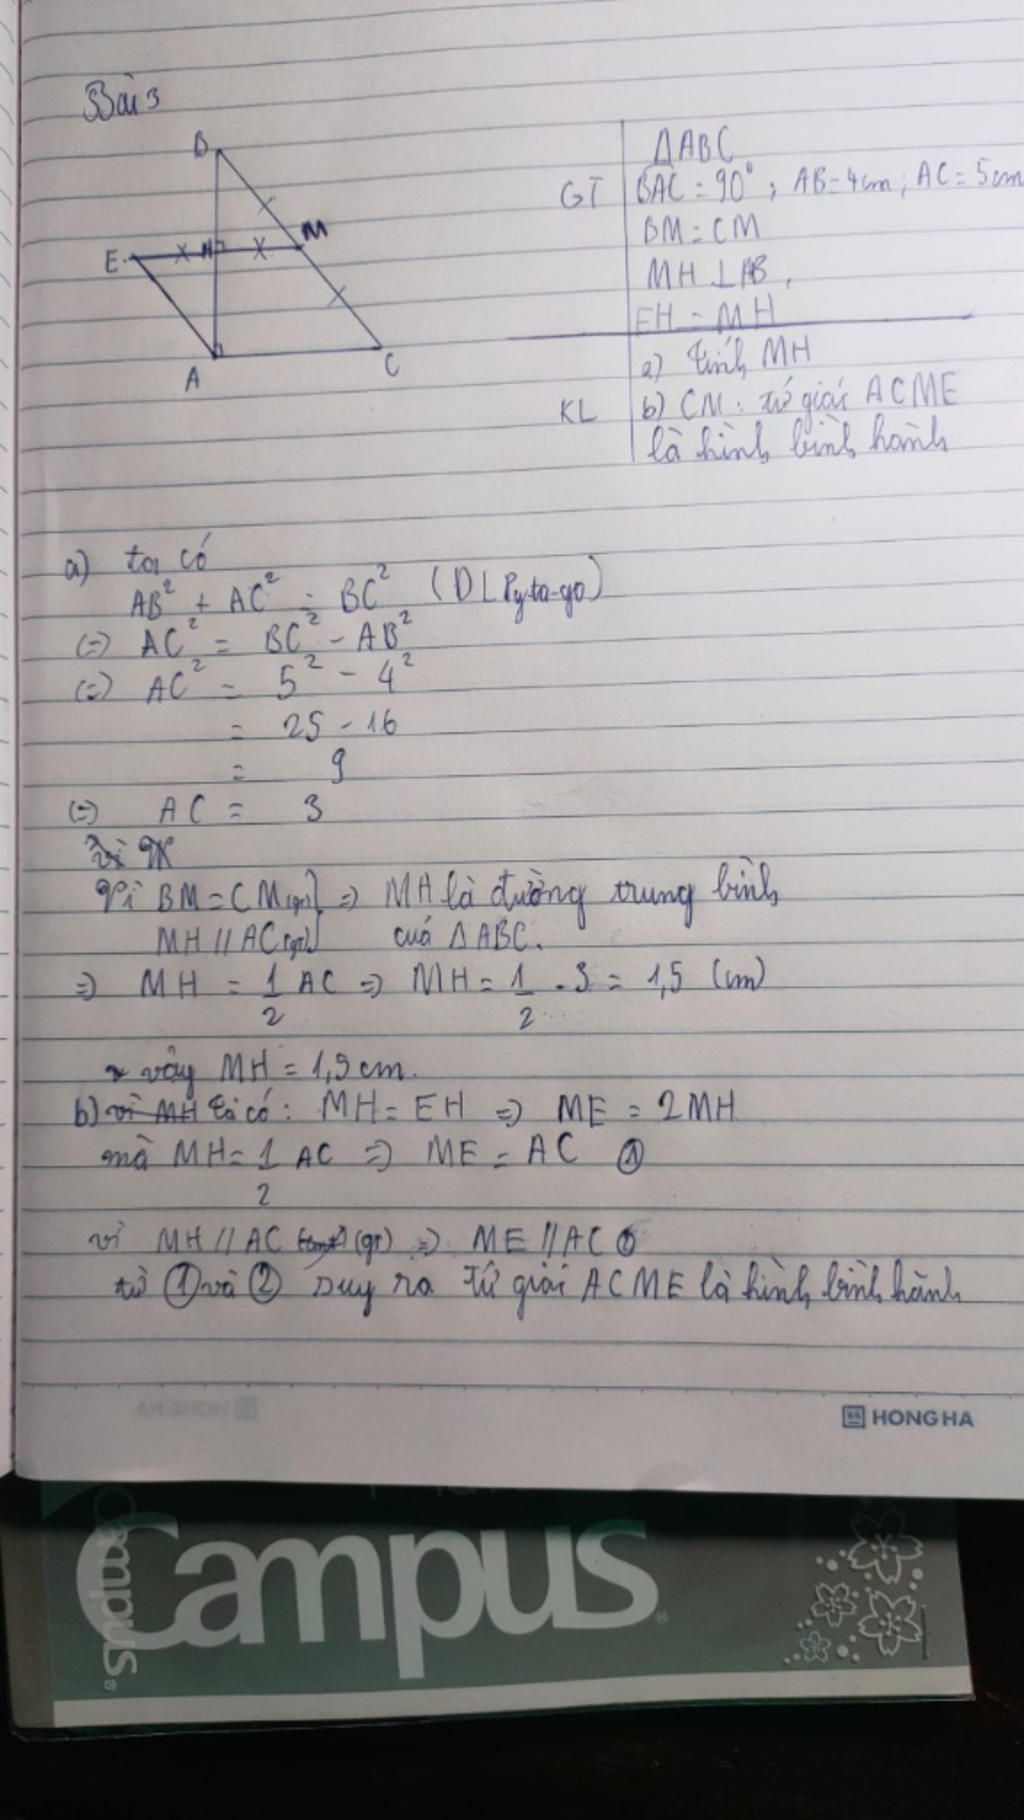 Bài 3
B
E
H
M
A
C
ΔABC
GT BAC = 90°; AB=4cm; AC=5cm
BM=CM
MH⊥AB,
EH=MH
a) tính MH
KL b) CM: tứ giác ACME
là hình bình hành
a) ta có
AB² + AC² = BC² (DL Pyta-go)
(=) AC² = BC² - AB²
(=) AC² = 5² - 4²
= 25 - 16
= 9
(=) AC = 3
Vì BM=CM(gt) => MH là đường trung bình
MH//AC(gt) của ΔABC.
=) MH = 1/2 AC => MH = 1/2 . 3 = 1,5 (cm)
vậy MH = 1,5cm.
b) vì MH ta có: MH=EH => ME = 2MH
mà MH=1/2 AC => ME = AC ①
vì MH//AC (gt) => ME//AC
từ ① và ② suy ra tứ giác ACME là hình bình hành
HONG HA
Campus
Campus